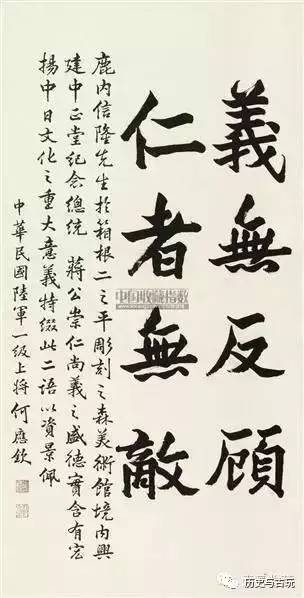 義無反顧
仁者無敵
鹿内信隆先生於箱根二之平彫刻之森美術館境内興
建中正堂紀念總統 蔣公崇仁尚義之盛德實含有宏
揚中日文化之重大意義特綴此二語以資景佩
中華民國陸軍一級上將何應欽
中国收藏指数
历史与古玩